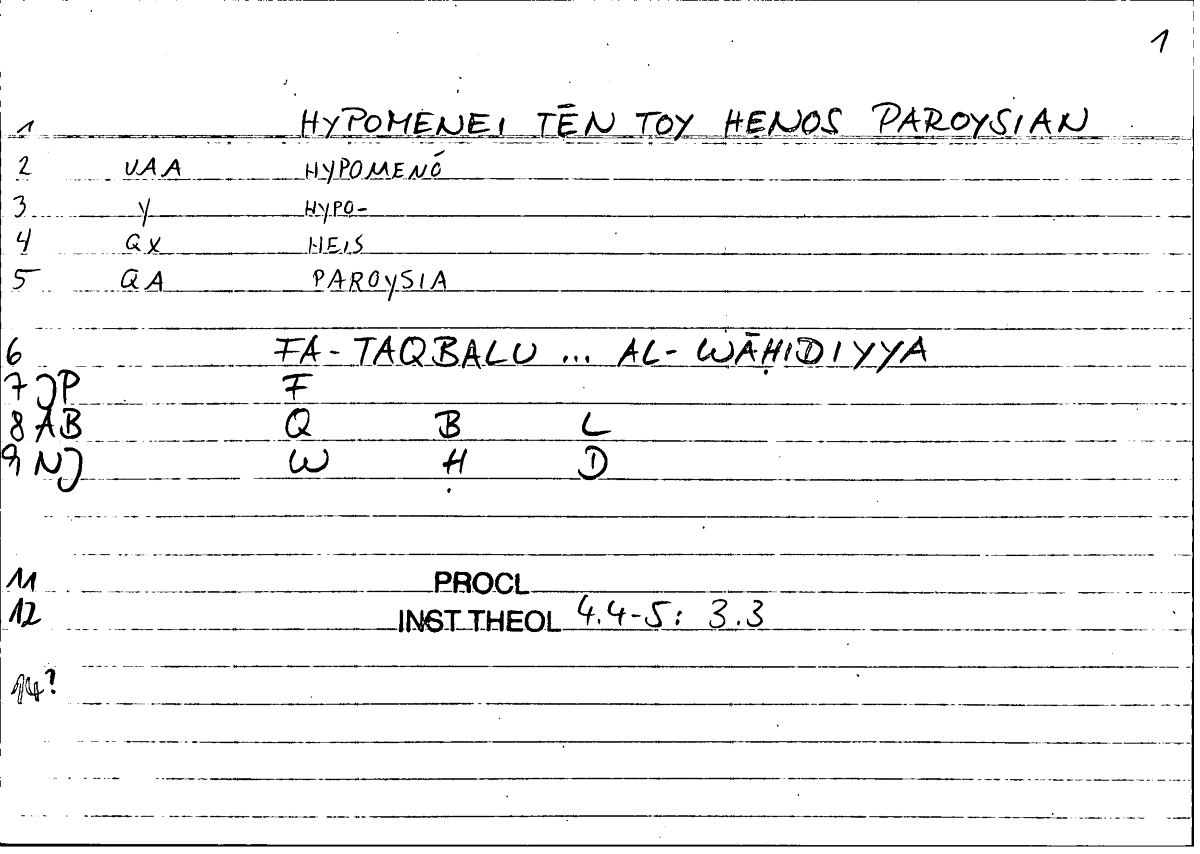 1
1 HYPOMENEI TĒN TOY HENOS PAROYSIAN
2 VAA HYPOMENŌ
3 Y HYPO-
4 QX HEIS
5 QA PAROYSIA
6 FA-TAQBALU ... AL-WĀḤIDIYYA
7 JP F
8 AB Q B L
9 NJ W Ḥ D
11 PROCL
12 INST THEOL 4.4-5: 3.3
14?